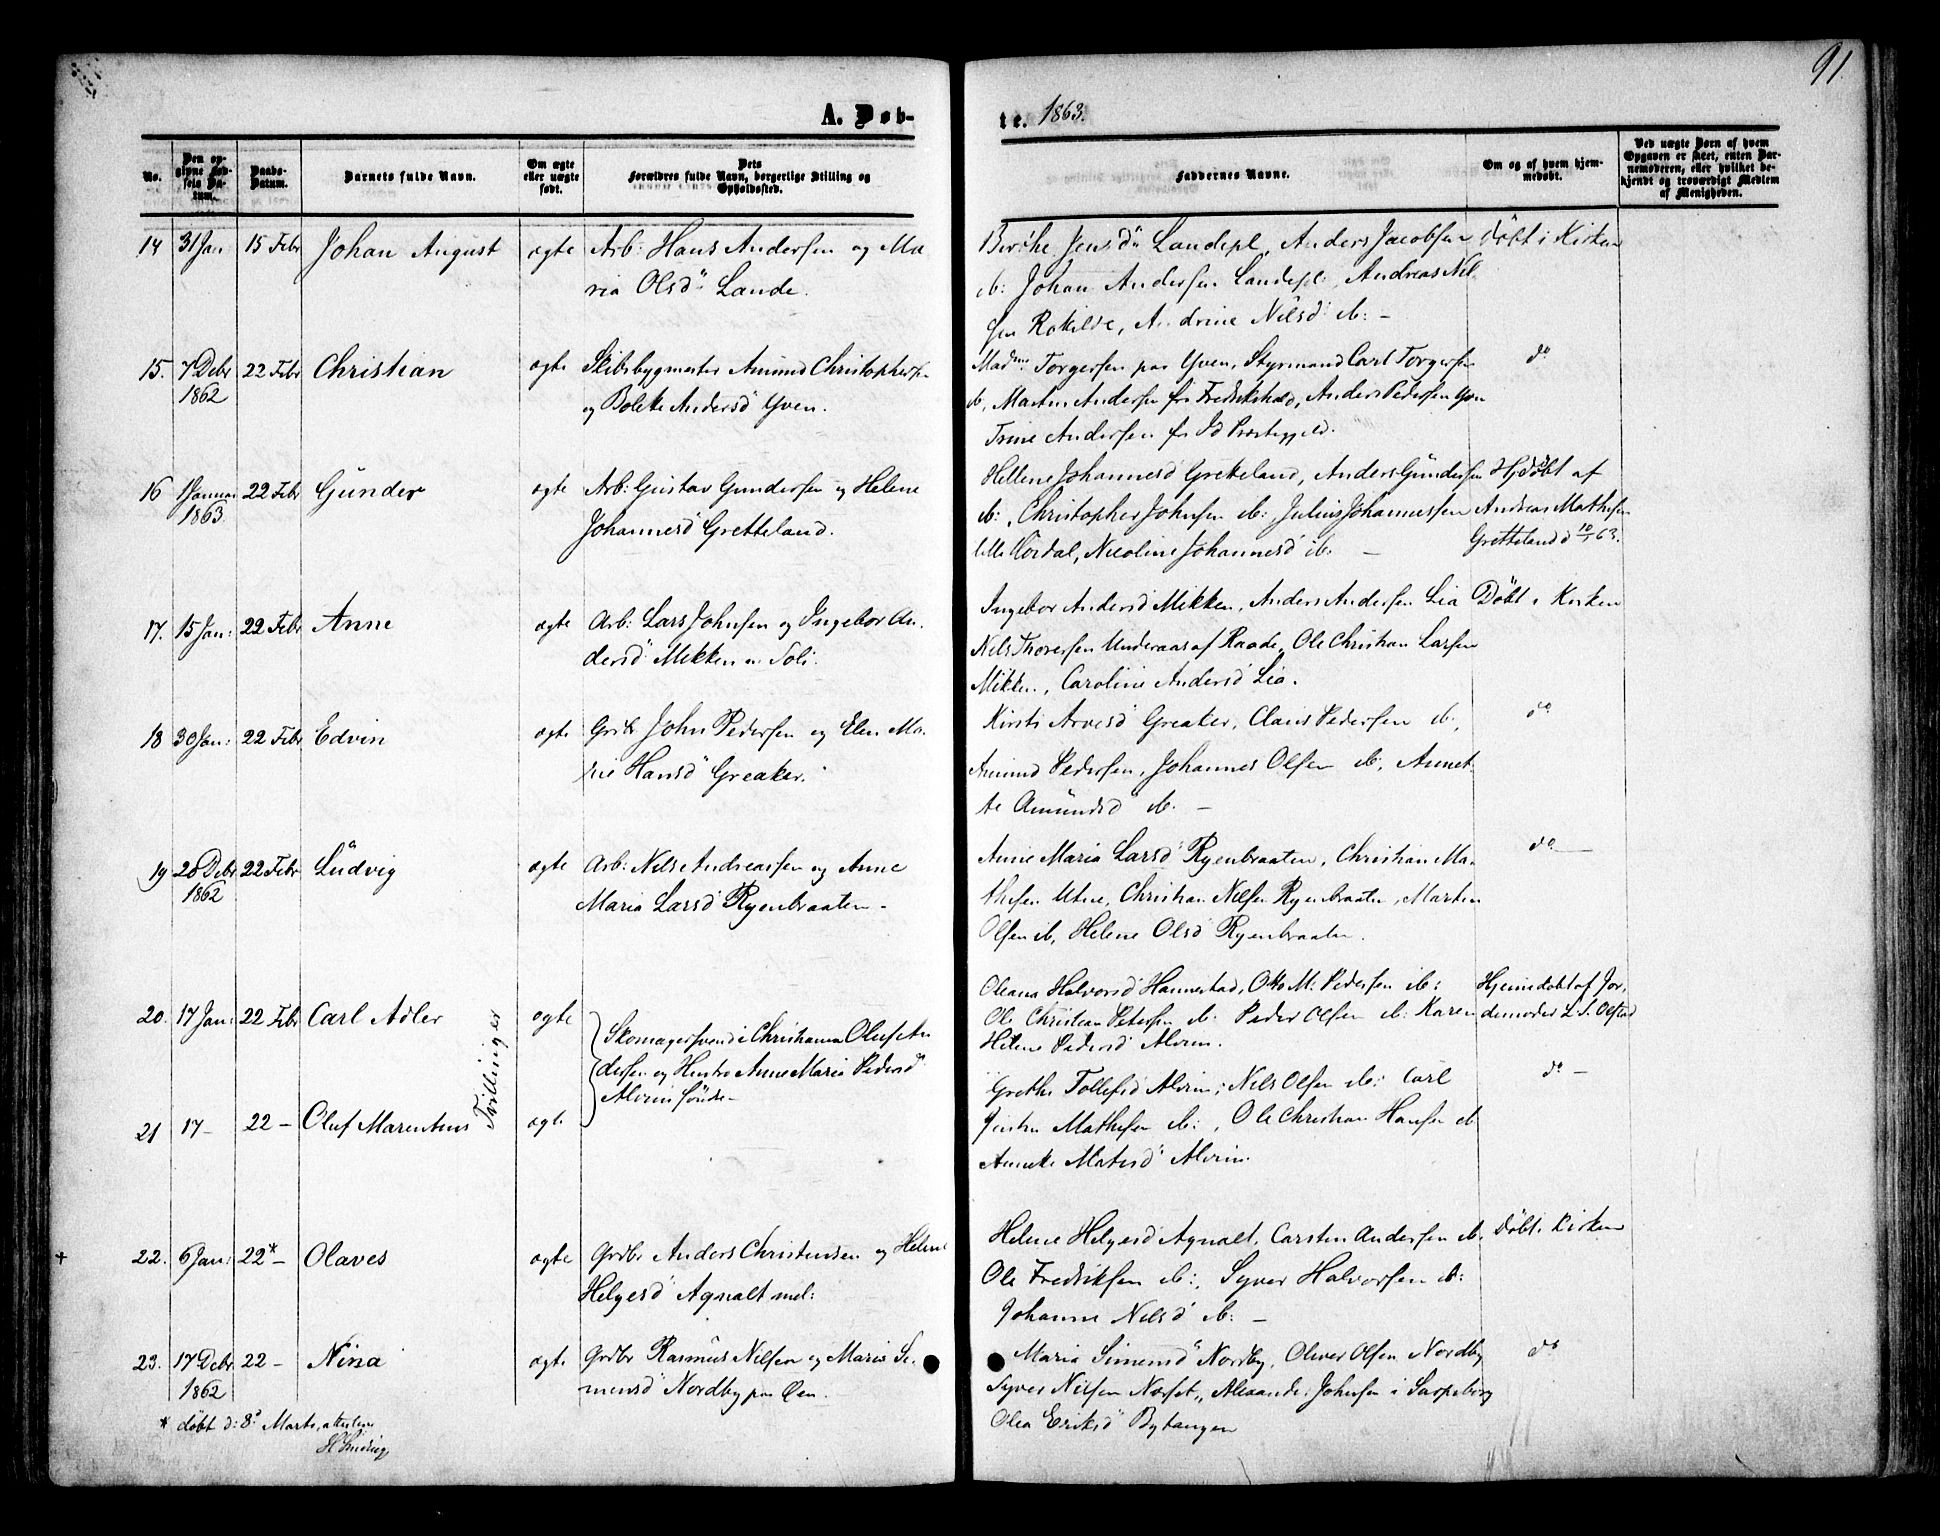 91
A. Døb-
te. 1863.
No.
Den opgivne Fødsels Datum.
Daabs-Datum.
Barnets fulde Navn.
Om ægte eller uægte født.
Dets Forældres fulde Navn, borgerlige Stilling og Opholdssted.
Faddernes Navne.
Om og af hvem hjemmedøbt.
Ved uægte Børn af hvem Opgaven er skeet, enten Barnemoderen, eller hvilket bekjendt og troværdigt Medlem af Menigheden.
14 31 Jan 15 Febr Johan August ægte Arb: Hans Andersen og Ma
ria Olsd Lande.
Jensd Landepl, Anders Jacobsen
ib: Johan Andersen Landepl:, Andreas Nil
sen Rokilde, Andrine Nilsd ib: -
Döbt i Kirken
15. 7 Debr 22 Febr Christian ægte Skibsbygmester Amund Christophers
1862
og Bolette Andersd Yven.
Madme Torgersen paa Yven, Styrmand Carl Torgersen
ib, Martin Andersen fr Fredrikshald, Anders Pedersen Yven
Trine Andersen fr Id Præstegjeld.
do
16 1 Januar 22 Febr Günder ægte Arb: Gustav Gundersen og Helene
1863.
Johannesd Gretteland.
Hellene Johannesd Grekeland, Anders Gündersen
ib:, Christopher Johnsen ib:, Julius Johannessen
lille Nordal, Nicoline Johannesd ib: -
Hjdöbt af
Andreas Mathesen
Gretteland d 10/1 63.
17. 15 Jan: 22 Febr Anne ægte Arb: Lars Johnsen og Ingebor An-
dersd Mikken i Soli.
Ingebor Andersd Mikken, Anders Andersen Lia
Nels Thoresen Underaas af Raade, Ole Christian Larsen
Mikken, Caroline Andersd Lia.
Döbt i Kirken
18 30 Jan: 22 Febr Edvin ægte Grbr John Pedersen og Elen Ma-
rie Hansd Greaker.
Kirsti Arvesd Greaker, Claus Pedersen ib,
Amund Pedersen, Johannes Olsen ib, Annet-
te Amündsd ib. -
do
19 28 Debr 22 Febr Lüdvig ægte Arb: Nels Andreassen og Anne
1862
Maria Larsd Ryenbraaten -
Anne Maria Larsd Ryenbraaten, Christian Ma-
thesen Utne, Christian Nilsen Ryenbraaten, Marten
Olsen ib, Helene Olsd Ryenbraaten.
do
20. 17 Jan: 22 Febr Carl Adler ægte
Tvillinger
Skomagersvend i Christiania Oluf An
dersen og Hustro Anne Maria Pedersd
Alvim søndre -
Oleana Halvorsd Hannestad, Otto M. Pedersen ib:
Ole Christian Petersen ib: Peder Olsen ib: Karen
Helene Pedersd Alvim.
Hjemdöbt af Jor-
demoder L. S. Olstad
21 17 - 22 - Oluf Marentius ægte
Grethe Tollefsd Alvim, Nels Olsen ib: Carl
Mathesen ib:, Ole Christian Hansen ib
Anneke Matisd Alvim.
do -
22. 6 Jan: 22* - Olaves ægte Grdbr Anders Christensen og Helene
Helgesd Agnalt mel:
Helene Helgesd Agnalt, Carsten Andersen ib,
Ole Fredriksen ib:, Syver Halvorsen ib:
Johanne Nelsd ib: -
Döbt i Kirken
23. 17 Debr 22 - Nina ægte Grdbr Rasmus Nilsen og Maria Si-
1862
mensd Nordby paa Öen.
Maria Simensd Nordby, Oliver Olsen Nordby
Syver Nilsen Næset, Alexander Johnsen i Sarpsborg
Olea Eriksd Bytangen
do
* döbt d: 8de Marts, attesterer